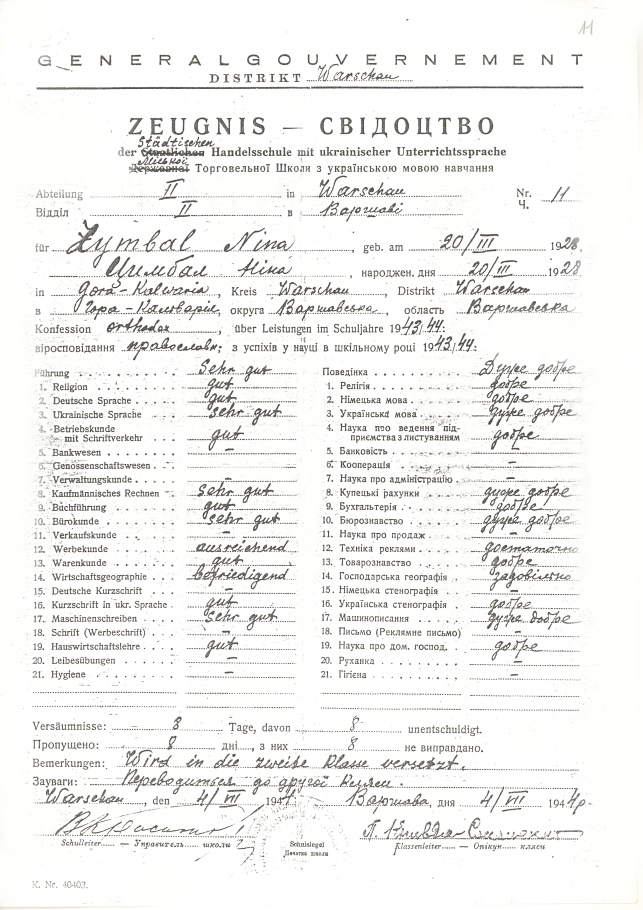 11
GENERALGOUVERNEMENT
DISTRIKT Warschau
ZEUGNIS — СВІДОЦТВО
Städtischen
der Staatlichen Handelsschule mit ukrainischer Unterrichtssprache
Міської
Державної Торговельної Школи з українською мовою навчання
Abteilung II in Warschau Nr. 11
Відділ II в Варшаві Ч.
für Zymbal Nina, geb. am 20/III 1928.
Цимбал Ніна, народжен. дня 20/III 1928
in Gora-Kalwaria, Kreis Warschau, Distrikt Warschau
в Гора-Кальварія, округа Варшавська, область Варшавська
Konfession orthodox, über Leistungen im Schuljahre 1943/44:
віросповідання православн; з успіхів у науці в шкільному році 1943/44:
Führung Sehr gut Поведінка Дуже добре
1. Religion gut 1. Релігія добре
2. Deutsche Sprache gut 2. Німецька мова добре
3. Ukrainische Sprache sehr gut 3. Українська мова дуже добре
4. Betriebskunde 4. Наука про ведення під-
mit Schriftverkehr gut приємства з листуванням добре
5. Bankwesen — 5. Банковість —
6. Genossenschaftswesen — 6. Кооперація —
7. Verwaltungskunde — 7. Наука про адміністрацію —
8. Kaufmännisches Rechnen Sehr gut 8. Купецькі рахунки дуже добре
9. Buchführung gut 9. Бухгальтерія добре
10. Bürokunde sehr gut 10. Бюрознавство дуже добре
11. Verkaufskunde — 11. Наука про продаж —
12. Werbekunde ausreichend 12. Техніка реклями достаточно
13. Warenkunde gut 13. Товарознавство добре
14. Wirtschaftsgeographie befriedigend 14. Господарська географія задовільно
15. Deutsche Kurzschrift — 15. Німецька стенографія —
16. Kurzschrift in ukr. Sprache gut 16. Українська стенографія добре
17. Maschinenschreiben Sehr gut 17. Машинописання дуже добре
18. Schrift (Werbeschrift) — 18. Письмо (Реклямне письмо) —
19. Hauswirtschaftslehre gut 19. Наука про дом. господ. добре
20. Leibesübungen — 20. Руханка —
21. Hygiene — 21. Гігієна —
Versäumnisse: 8 Tage, davon 8 unentschuldigt.
Пропущено: 8 дні, з них 8 не виправдано.
Bemerkungen: Wird in die zweite Klasse versetzt.
Зауваги: Переводиться до другої кляси.
Warschau, den 4/VII 194 Варшава, дня 4/VII 1944 р.
Schulleiter — Управитель школи Schulsiegel Klassenleiter — Опікун кляси
Печатка школи
K. Nr. 40403.